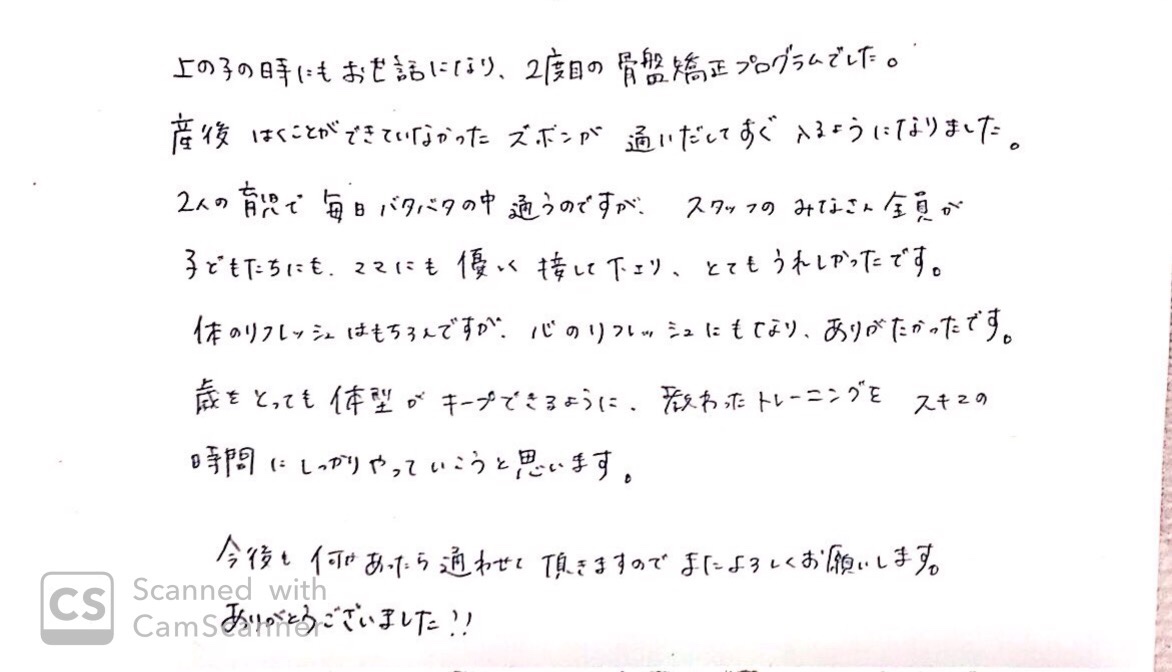 上の子の時にもお世話になり、2度目の骨盤矯正プログラムでした。
産後 はくことができていなかった ズボンが 通いだしてすぐ 入るようになりました。
2人の育児で 毎日バタバタの中 通うのですが、 スタッフの みなさん全員が
子どもたちにも、ママにも 優しく 接して下さり、とてもうれしかったです。
体のリフレッシュはもちろんですが、心のリフレッシュにもなり、ありがたかったです。
歳をとっても 体型が キープできるように、教わったトレーニングを スキマの
時間にしっかりやっていこうと思います。
今後も 何かあったら通わせて 頂きますので またよろしくお願いします。
ありがとうございました!!
CS Scanned with
CamScanner